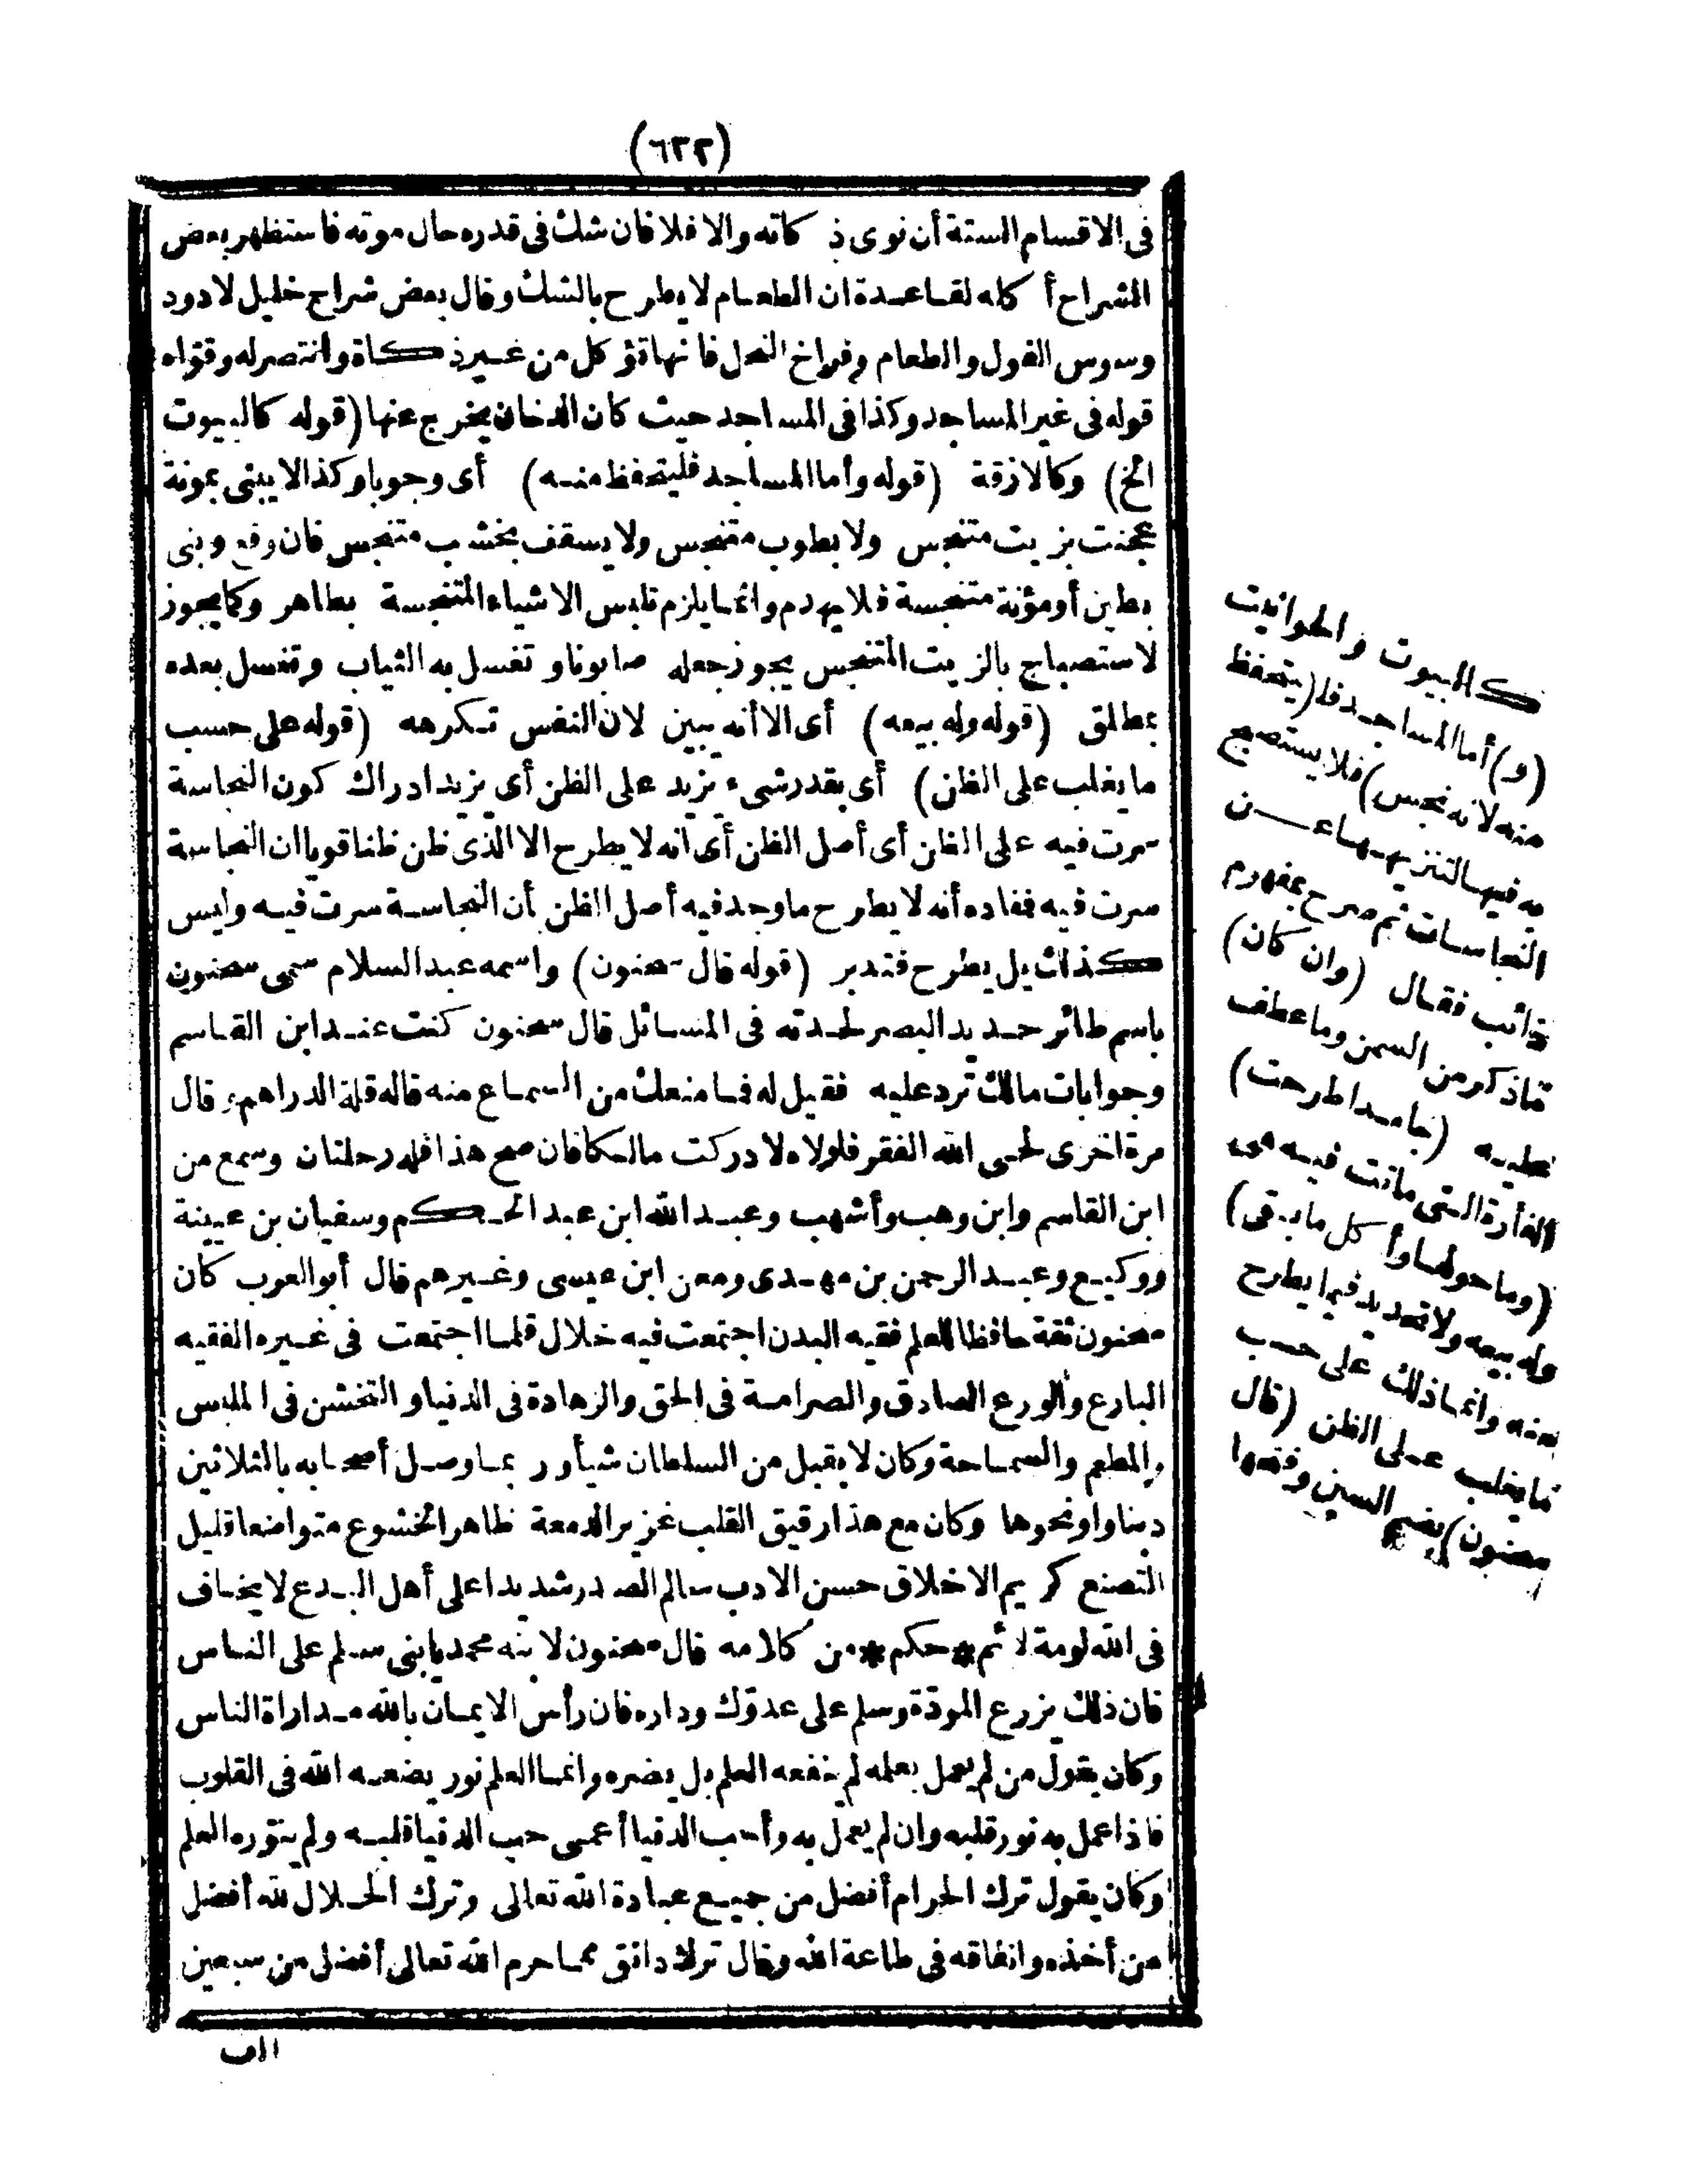 (٦٣٢)
فى الاقسام الستة أن نوى ذكاته والا فلا فان شك فى قدره حال موته فاستظهر بعض
الشراح أكله لقاعدة ان الطعام لا يطرح بالشك وقال بعض شراح خليل لا دود
وسوس الفول والطعام وفراخ النحل فانها تؤكل من غير ذكاة وانتصر له وقوّاه
قوله فى غير المساجد وكذا فى المساجد حيث كان الدخان يخرج عنها (قوله كالبيوت
الخ) وكالازقة (قوله وأما المساجد فليتحفظ منه) أى وجوبا وكذا لا يبنى بمونة
عجنت بزيت متنجس ولا بطوب متنجس ولا يسقف بخشب متنجس فان وقع وبنى
بطين أو مؤنة متنجسة فلا يهدم وانما يلزم تلبس الاشياء المتنجسة بطاهر وكما يجوز
لاستصباح بالزيت المتنجس يجوز جعله صابونا وتغسل به الثياب وتغسل بعده
بمطلق (قوله وله بيعه) أى الا أنه يبين لان النفس تكرهه (قوله على حسب
ما يغلب على الظن) أى بقدر شىء يزيد على الظن أى يزيد ادراك كون النجاسة
سرت فيه على الظن أى أصل الظن أى انه لا يطرح الا الذى ظن ظنا قويا ان النجاسة
سرت فيه فمفاده أنه لا يطرح ما وجد فيه أصل الظن أن النجاسة سرت فيه وليس
كذلك بل يطرح فتدبر (قوله قال سحنون) واسمه عبد السلام سمى سحنون
باسم طائر حديد البصر لحدته فى المسائل قال سحنون كنت عند ابن القاسم
وجوابات مالك ترد عليه فقيل له فما منعك من السماع منه قال قلة الدراهم وقال
مرة اخرى لحى الله الفقر فلولاه لادركت مالكا فان صح هذا فله رحلتان وسمع من
ابن القاسم وابن وهب وأشهب وعبد الله ابن عبد الحكم وسفيان بن عيينة
ووكيع وعبد الرحمن بن مهدى ومعن ابن عيسى وغيرهم قال أبو العرب كان
سحنون ثقة حافظا للعلم فقيه البدن اجتمعت فيه خلال قلما اجتمعت فى غيره الفقيه
البارع والورع الصادق والصرامة فى الحق والزهادة فى الدنيا والتخشن فى الملبس
والمطعم والسماحة وكان لا يقبل من السلطان شيأ وربما وصل أصحابه بالثلاثين
دينارا ونحوها وكان مع هذا رقيق القلب غزير الدمعة ظاهر الخشوع متواضعا قليل
التصنع كريم الاخلاق حسن الادب سالم الصدر شديدا على أهل البدع لا يخاف
فى الله لومة لائم*حكم*من كلامه قال سحنون لابنه محمد يا بنى سلم على الناس
فان ذلك يزرع المودّة وسلم على عدوّك وداره فان رأس الايمان بالله مداراة الناس
وكان يقول من لم يعمل بعلمه لم ينفعه العلم بل يضره وانما العلم نور يضعه الله فى القلوب
فاذا عمل به نور قلبه وان لم يعمل به وأحب الدنيا أعمى حب الدنيا قلبه ولم ينوره العلم
وكان يقول ترك الحرام أفضل من جميع عبادة الله تعالى وترك الحلال لله أفضل
من أخذه وانفاقه فى طاعة الله وقال ترك دانق مما حرم الله تعالى أفضل من سبعين
كالبيوت والحوانيت
(و) أما المساجد فل (يتحفظ
منه لانه نجس) فلا يستصبح
به فيها لتنزيهها عن
النجاسات ثم صرح بمفهوم
ذائب فقال (وان كان)
ماذكر من السمن وما عطف
عليه (جامدا طرحت)
الفأرة التى ماتت فيه هى
(وما حولها وأكل ما بقى)
وله بيعه ولا تحديد فيما يطرح
منه وانما ذلك على حسب
ما يغلب على الظن (قال
سحنون) بضم السين وفتحها